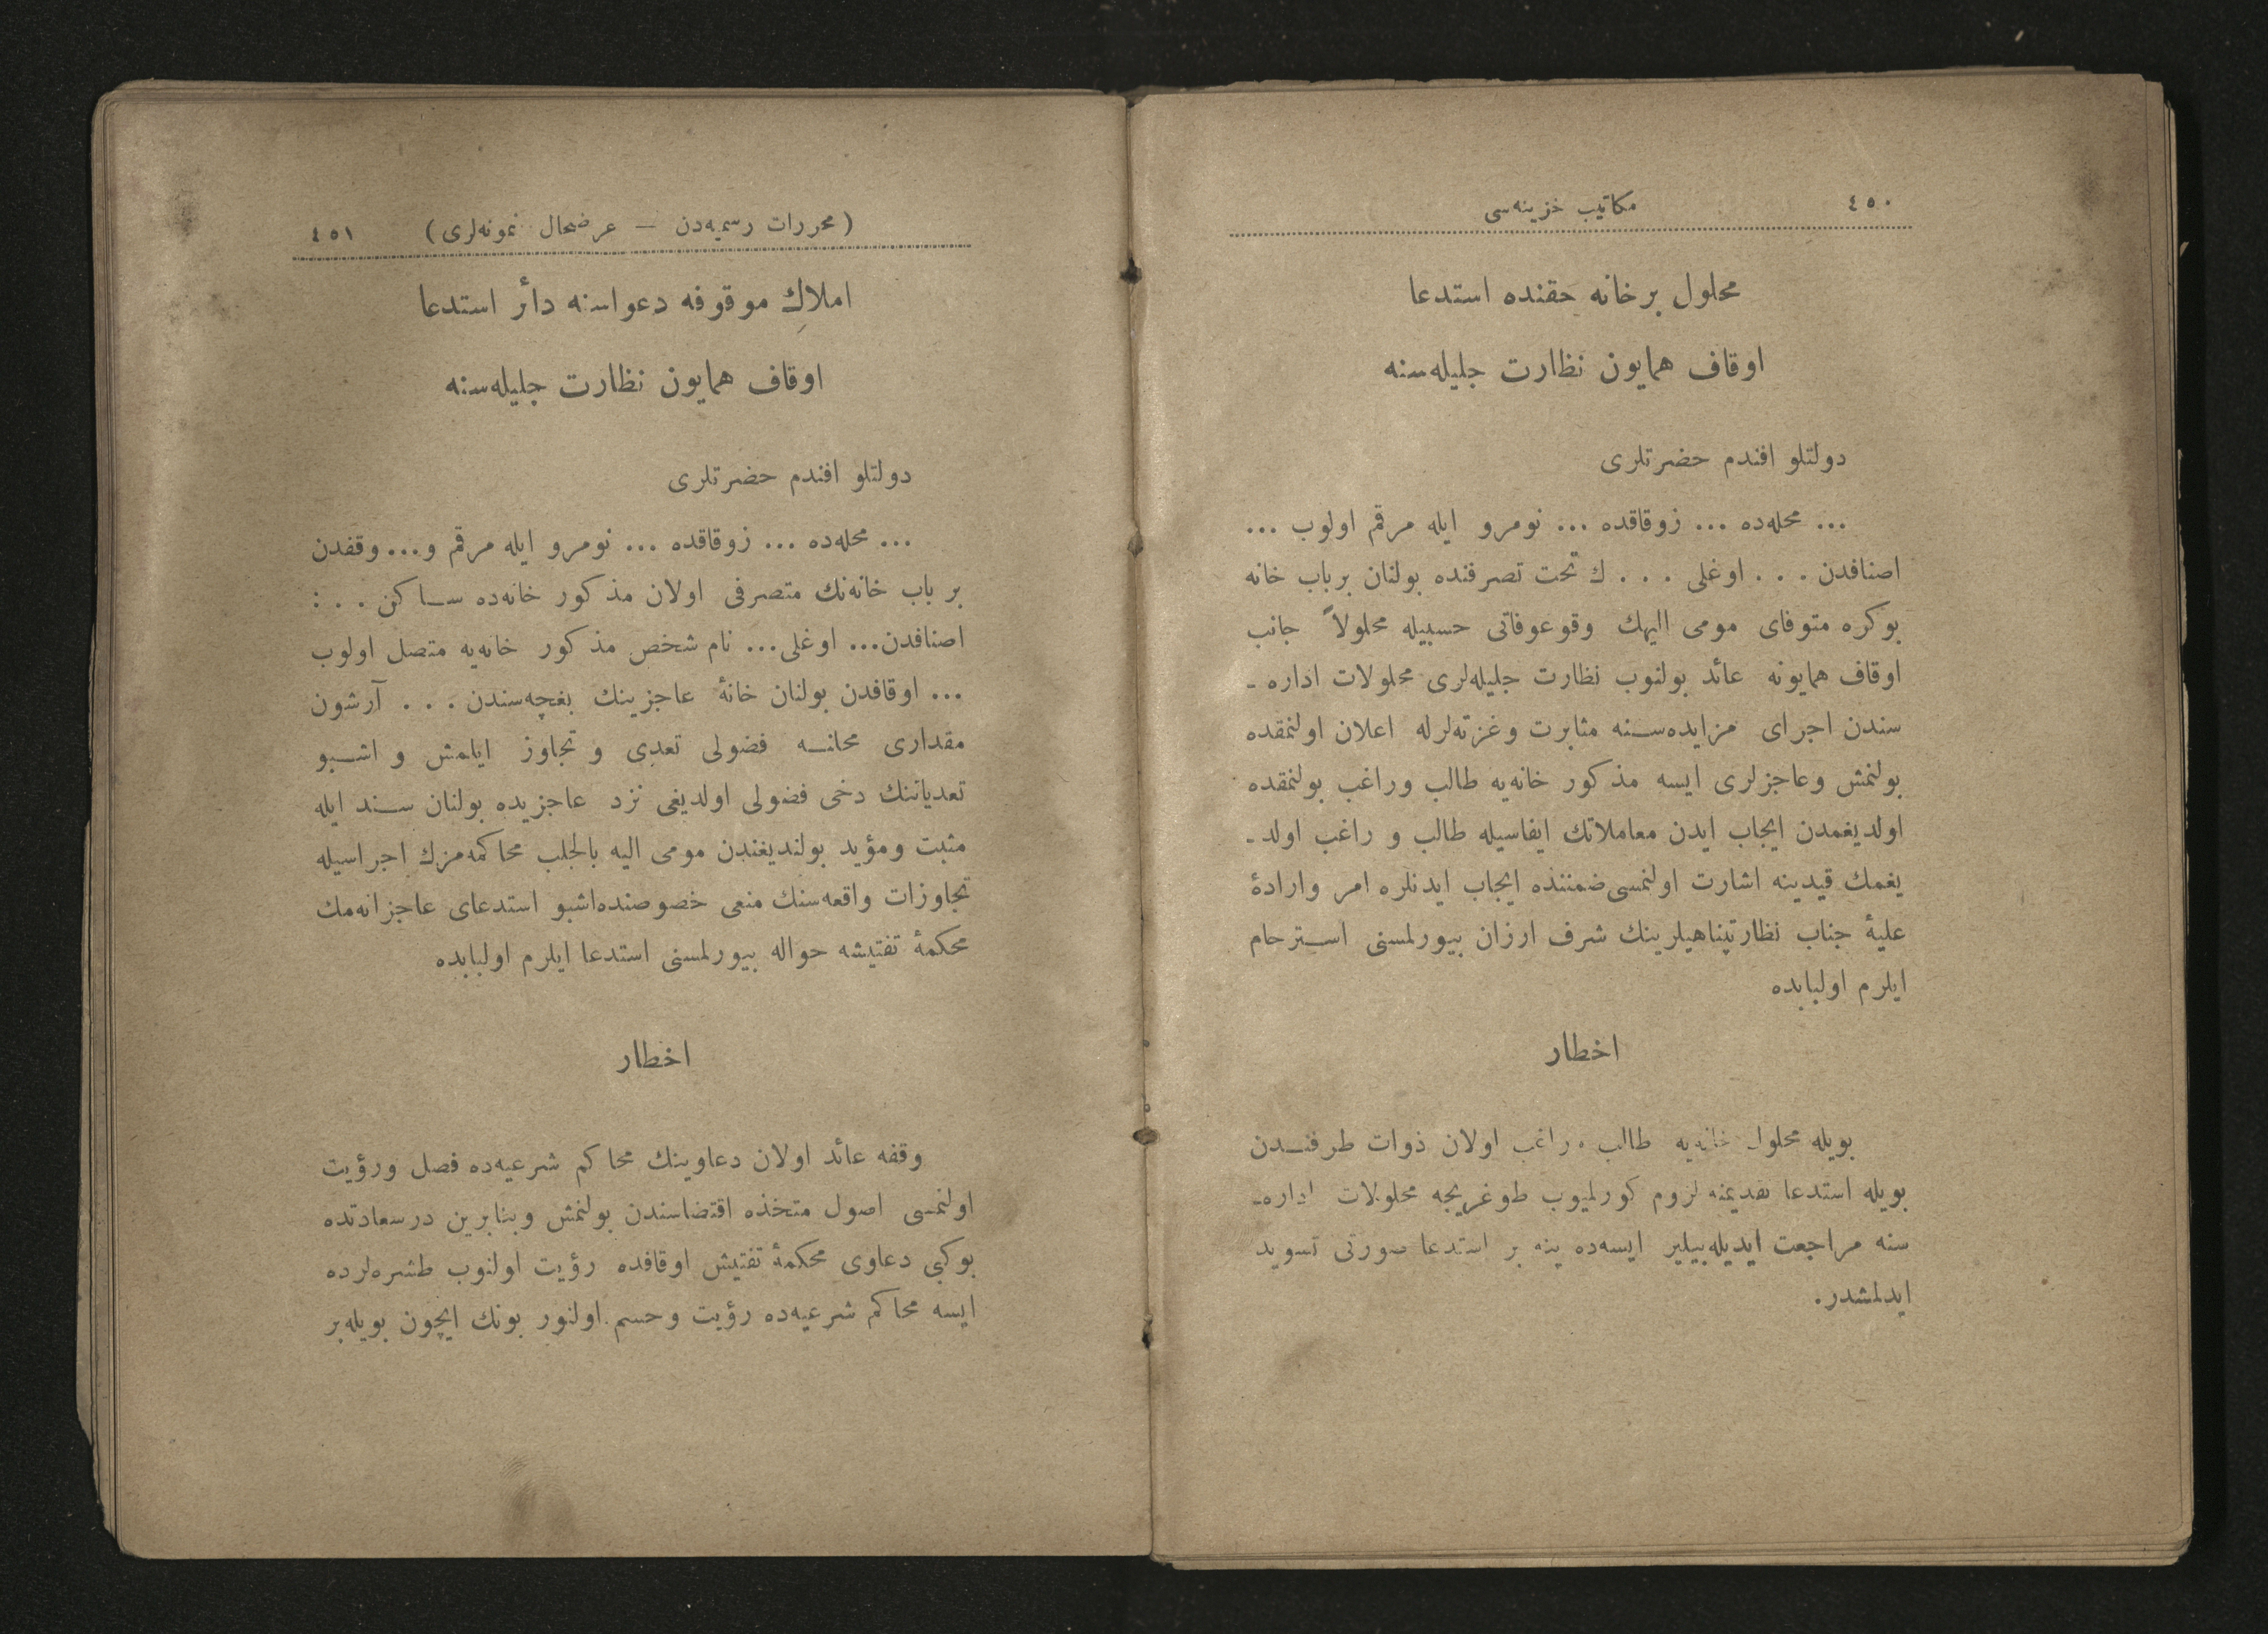 ٤٥٠ مكاتيب خزينه‌سى
محلول بر خانه حقنده استدعا
اوقاف همايون نظارت جليله‌سنه
دولتلو افندم حضرتلرى
... محله‌ده ... زوقاقده ... نومرو ايله مرقم اولوب ...
اصنافدن . . . اوغلى . . . ك تحت تصرفنده بولنان برباب خانه
بوكره متوفاى مومى اليهك وقوعوفاتى حسبيله محلولاً جانب
اوقاف همايونه عائد بولنوب نظارت جليله‌لرى محلولات اداره ـ
سندن اجراى مزايده‌سنه مثابرت وغزته‌لرله اعلان اولنمقده
بولنمش وعاجزلرى ايسه مذكور خانه‌يه طالب وراغب بولنمقده
اولديغمدن ايجاب ايدن معاملاتك ايفاسيله طالب و راغب اولد ـ
يغمك قيدينه اشارت اولنمسى ضمننده ايجاب ايدنلره امر وارادۀ
عليۀ جناب نظارتپناهيلرينك شرف ارزان بيورلمسنى استرحام
ايلرم اولبابده
اخطار
بويله محلول خانه‌يه طالب وراغب اولان ذوات طرفندن
بويله استدعا تقديمنه لزوم كورلميوب طوغريجه محلولات اداره ـ
سنه مراجعت ايديله‌بيلير ايسه‌ده ينه بر استدعا صورتى تسويد
ايدلمشدر.
(محررات رسميه‌دن — عرضحال نمونه‌لرى) ٤٥١
املاكِ موقوفه دعواسنه دائر استدعا
اوقاف همايون نظارت جليله‌سنه
دولتلو افندم حضرتلرى
... محله‌ده ... زوقاقده ... نومرو ايله مرقم و... وقفدن
بر باب خانه‌نك متصرفى اولان مذكور خانه‌ده ساكن . . :
اصنافدن... اوغلى... نام شخص مذكور خانه‌يه متصل اولوب
... اوقافدن بولنان خانۀ عاجزينك بغچه‌سندن . . . آرشون
مقدارى محلنه فضولى تعدى و تجاوز ايلمش و اشبو
تعدياتنك دخى فضولى اولديغى نزد عاجزيده بولنان سند ايله
مثبت ومؤيد بولنديغندن مومى اليه بالجلب محاكمه‌مزك اجراسيله
تجاوزات واقعه‌سنك منعى خصوصنده‌اشبو استدعاى عاجزانه‌مك
محكمۀ تفتيشه حواله بيورلمسنى استدعا ايلرم اولبابده
اخطار
وقفه عائد اولان دعاوينك محاكم شرعيه‌ده فصل ورؤيت
اولنمسى اصول متخذه اقتضاسندن بولنمش وبنابرين درسعادتده
بوكبى دعاوى محكمۀ تفتيش اوقافده رؤيت اولنوب طشره‌لرده
ايسه محاكم شرعيه‌ده رؤيت وحسم اولنور بونك ايچون بويله‌بر